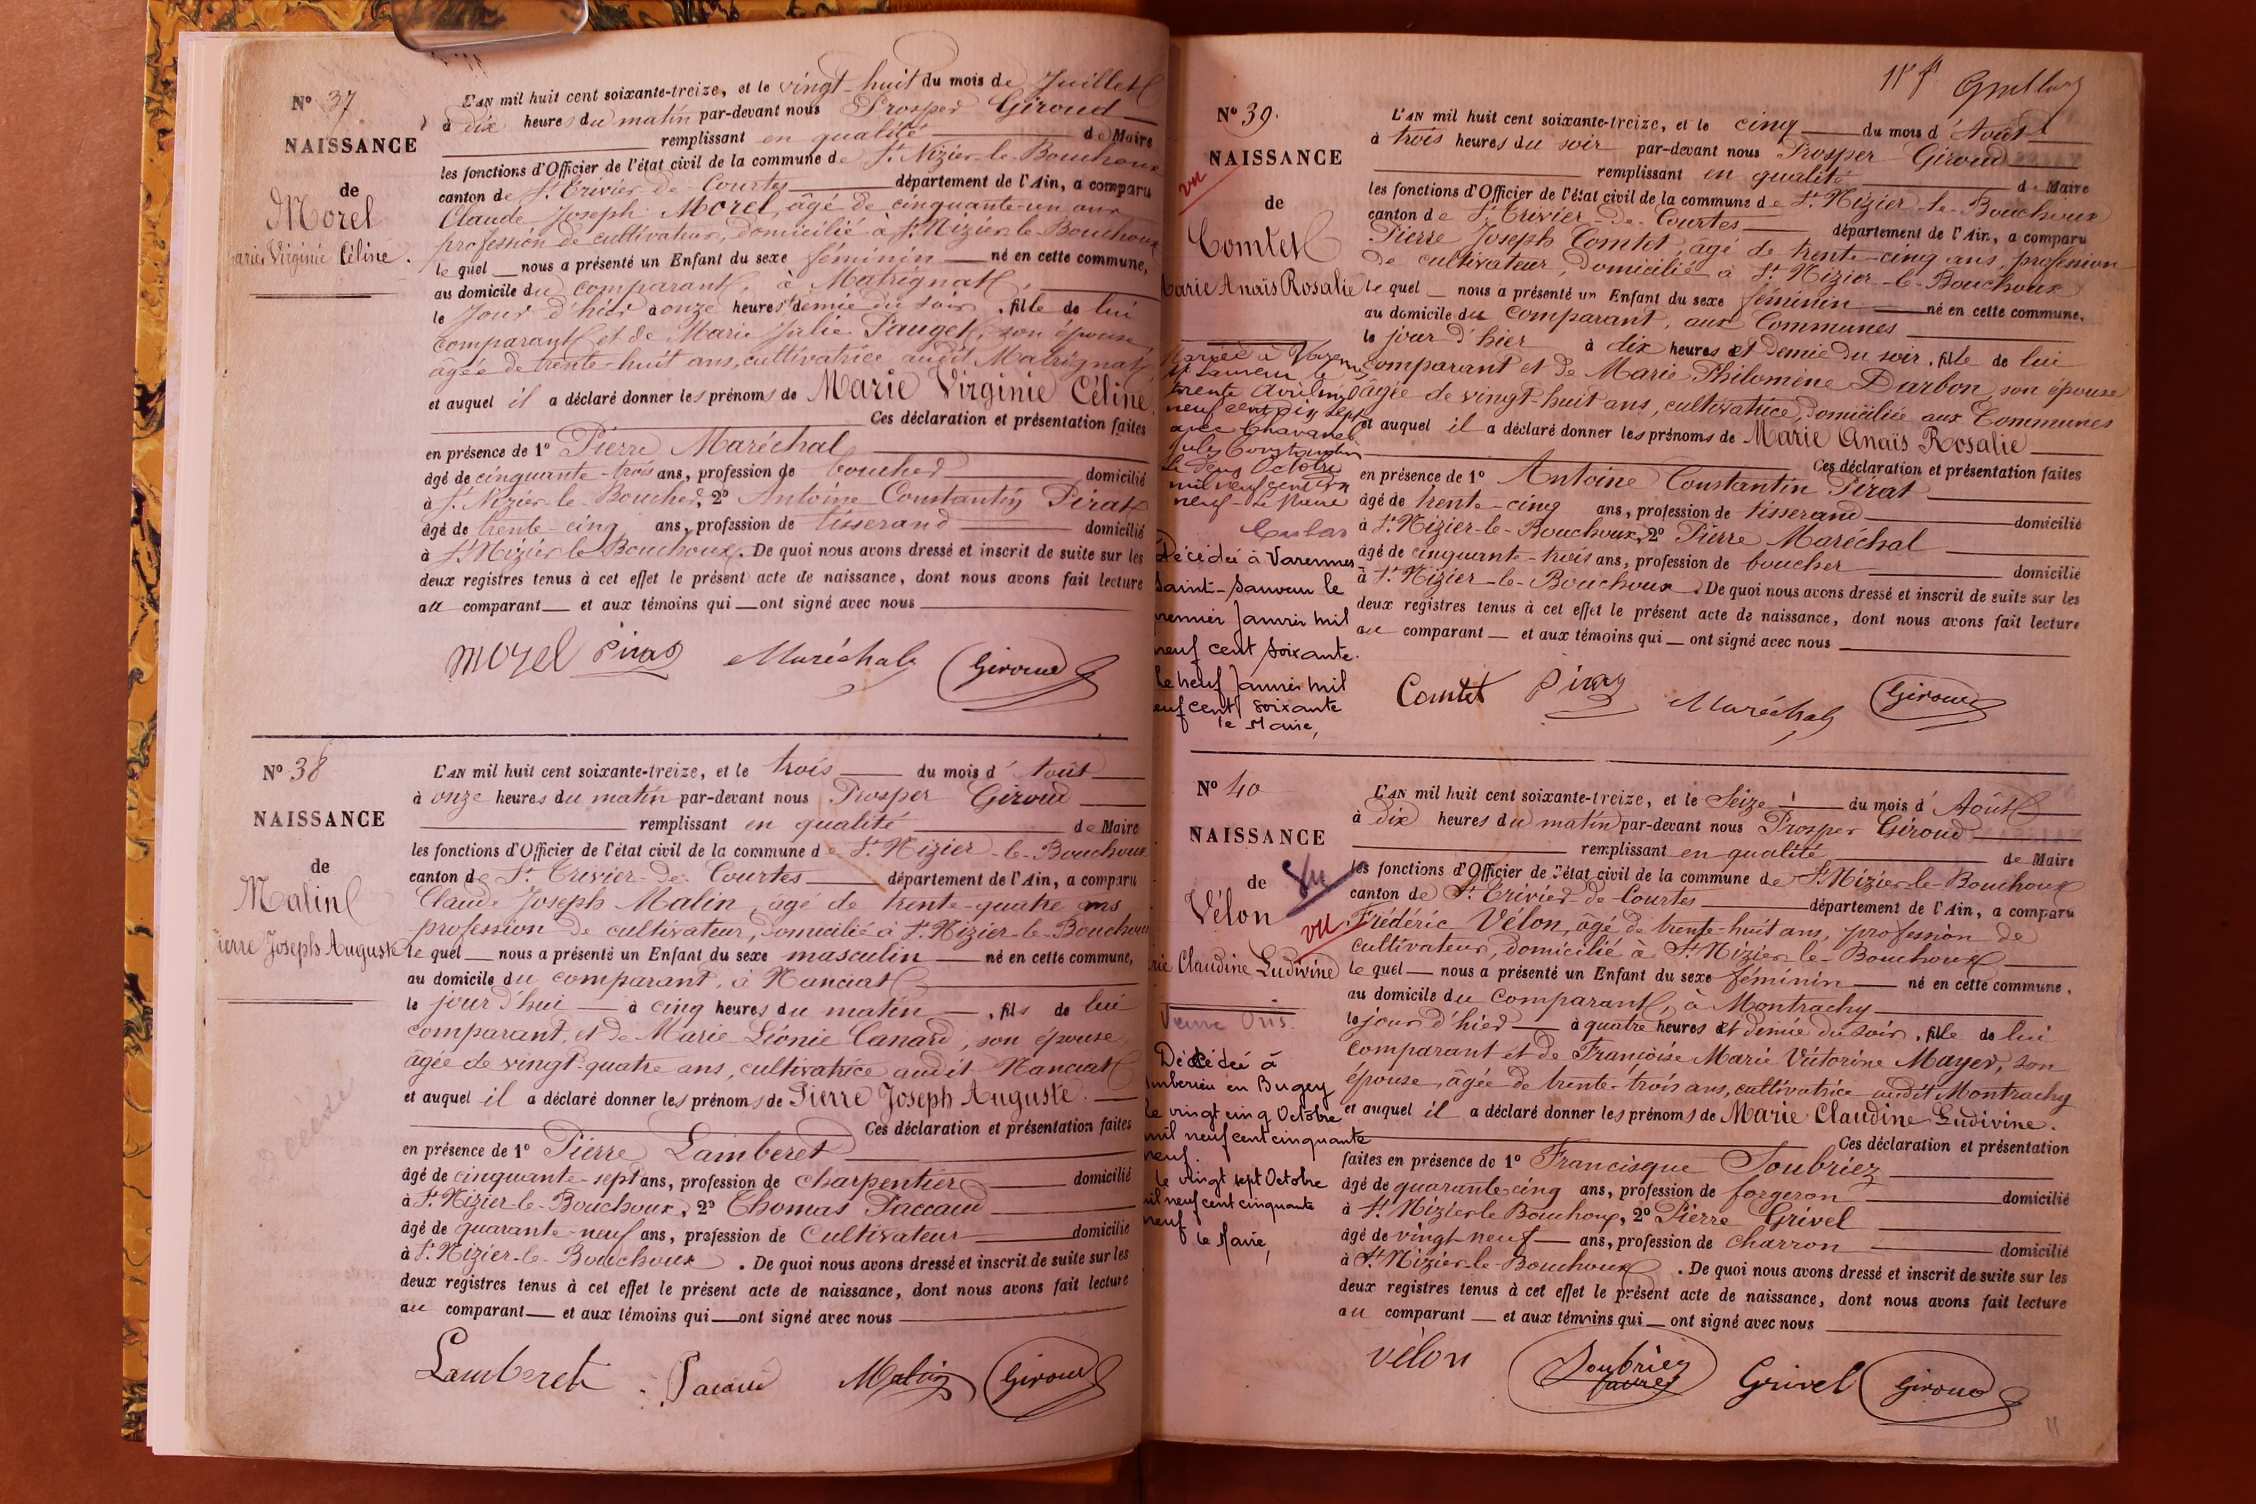 N° 37
NAISSANCE
de
Morel
Marie Virginie Céline.
L'AN mil huit cent soixante-treize, et le vingt-huit du mois de Juillet
à dix heures du matin par-devant nous Prosper Giroud
remplissant en qualité de Maire
les fonctions d'Officier de l'état civil de la commune de St Nizier-le-Bouchoux
canton de St Trivier-de-Courtes département de l'Ain, a comparu
Claude Joseph Morel, âgé de cinquante-un ans
profession de cultivateur, domicilié à St Nizier-le-Bouchoux
lequel nous a présenté un Enfant du sexe féminin né en cette commune,
au domicile du comparant, à Matrignat,
le jour d'hier à onze heures et demie du soir, fille de lui
comparant et de Marie Julie Pauget, son épouse,
âgée de trente-huit ans, cultivatrice audit Matrignat
et auquel il a déclaré donner les prénoms de Marie Virginie Céline.
Ces déclaration et présentation faites
en présence de 1° Pierre Maréchal
âgé de cinquante-trois ans, profession de boucher domicilié
à St Nizier-le-Bouchoux, 2° Antoine Constantin Pirat
âgé de trente-cinq ans, profession de tisserand domicilié
à St Nizier-le-Bouchoux. De quoi nous avons dressé et inscrit de suite sur les
deux registres tenus à cet effet le présent acte de naissance, dont nous avons fait lecture
au comparant et aux témoins qui ont signé avec nous
Morel Pirat Maréchal Giroud
N° 38
NAISSANCE
de
Matin
Pierre Joseph Auguste
Décédé
L'AN mil huit cent soixante-treize, et le trois du mois d'Août
à onze heures du matin par-devant nous Prosper Giroud
remplissant en qualité de Maire
les fonctions d'Officier de l'état civil de la commune de St Nizier-le-Bouchoux
canton de St Trivier-de-Courtes département de l'Ain, a comparu
Claude Joseph Matin, âgé de trente-quatre ans
profession de cultivateur, domicilié à St Nizier-le-Bouchoux
lequel nous a présenté un Enfant du sexe masculin né en cette commune,
au domicile du comparant, à Nanciat
le jour d'hui à cinq heures du matin, fils de lui
comparant, et de Marie Léonie Canard, son épouse,
âgée de vingt-quatre ans, cultivatrice audit Nanciat
et auquel il a déclaré donner les prénoms de Pierre Joseph Auguste.
Ces déclaration et présentation faites
en présence de 1° Pierre Lamberet
âgé de cinquante-sept ans, profession de charpentier domicilié
à St Nizier-le-Bouchoux, 2° Thomas Paccaud
âgé de quarante-neuf ans, profession de Cultivateur domicilié
à St Nizier-le-Bouchoux. De quoi nous avons dressé et inscrit de suite sur les
deux registres tenus à cet effet le présent acte de naissance, dont nous avons fait lecture
au comparant et aux témoins qui ont signé avec nous
Lamberet Pacaud Matin Giroud
N° 39.
NAISSANCE
vu
de
Comtet
Marie Anaïs Rosalie
Mariée à Varennes
St Sauveur le
trente Avril mil
neuf cent dix sept
avec Chavanel
Jules Constantin
le deux Octobre
mil neuf cent dix
neuf - Le Maire
Décédée à Varennes
Saint-Sauveur le
premier Janvier mil
neuf cent soixante.
le neuf Janvier mil
neuf cent soixante
le Maire,
L'AN mil huit cent soixante-treize, et le cinq du mois d'Août
à trois heures du soir par-devant nous Prosper Giroud
remplissant en qualité de Maire
les fonctions d'Officier de l'état civil de la commune de St Nizier-le-Bouchoux
canton de St Trivier-de-Courtes département de l'Ain, a comparu
Pierre Joseph Comtet, âgé de trente-cinq ans, profession
de cultivateur, domicilié à St Nizier-le-Bouchoux
lequel nous a présenté un Enfant du sexe féminin né en cette commune,
au domicile du comparant, aux Communes
le jour d'hier à dix heures et demie du soir, fille de lui
comparant et de Marie Philomène Darbon, son épouse
âgée de vingt-huit ans, cultivatrice, domiciliée aux Communes
et auquel il a déclaré donner les prénoms de Marie Anaïs Rosalie
Ces déclaration et présentation faites
en présence de 1° Antoine Constantin Pirat
âgé de trente-cinq ans, profession de tisserand domicilié
à St Nizier-le-Bouchoux, 2° Pierre Maréchal
âgé de cinquante-trois ans, profession de boucher domicilié
à St Nizier-le-Bouchoux. De quoi nous avons dressé et inscrit de suite sur les
deux registres tenus à cet effet le présent acte de naissance, dont nous avons fait lecture
au comparant et aux témoins qui ont signé avec nous
Comtet Pirat Maréchal Giroud
N° 40
NAISSANCE
de
Vélon
vu
Marie Claudine Ludivine
Décédée à
Ambérieu en Bugey
le vingt cinq Octobre
mil neuf cent cinquante
neuf.
le vingt sept Octobre
mil neuf cent cinquante
neuf
le Maire,
L'AN mil huit cent soixante-treize, et le Seize du mois d'Août
à Dix heures du matin par-devant nous Prosper Giroud
remplissant en qualité de Maire
les fonctions d'Officier de l'état civil de la commune de St Nizier-le-Bouchoux
canton de St Trivier-de-Courtes département de l'Ain, a comparu
Frédéric Vélon, âgé de trente-huit ans, profession de
cultivateur, domicilié à St Nizier-le-Bouchoux
lequel nous a présenté un Enfant du sexe féminin né en cette commune,
au domicile du comparant, à Montrachy
le jour d'hier à quatre heures et demie du soir, fille de lui
comparant et de Françoise Marie Victorine Mayer, son
épouse, âgée de trente-trois ans, cultivatrice audit Montrachy
et auquel il a déclaré donner les prénoms de Marie Claudine Ludivine.
Ces déclaration et présentation
faites en présence de 1° Francisque Soubriez
âgé de quarante cinq ans, profession de forgeron domicilié
à St Nizier-le-Bouchoux, 2° Pierre Grivel
âgé de vingt-neuf ans, profession de charron domicilié
à St Nizier-le-Bouchoux. De quoi nous avons dressé et inscrit de suite sur les
deux registres tenus à cet effet le présent acte de naissance, dont nous avons fait lecture
au comparant et aux témoins qui ont signé avec nous
Vélon Soubriez Grivel Giroud
11